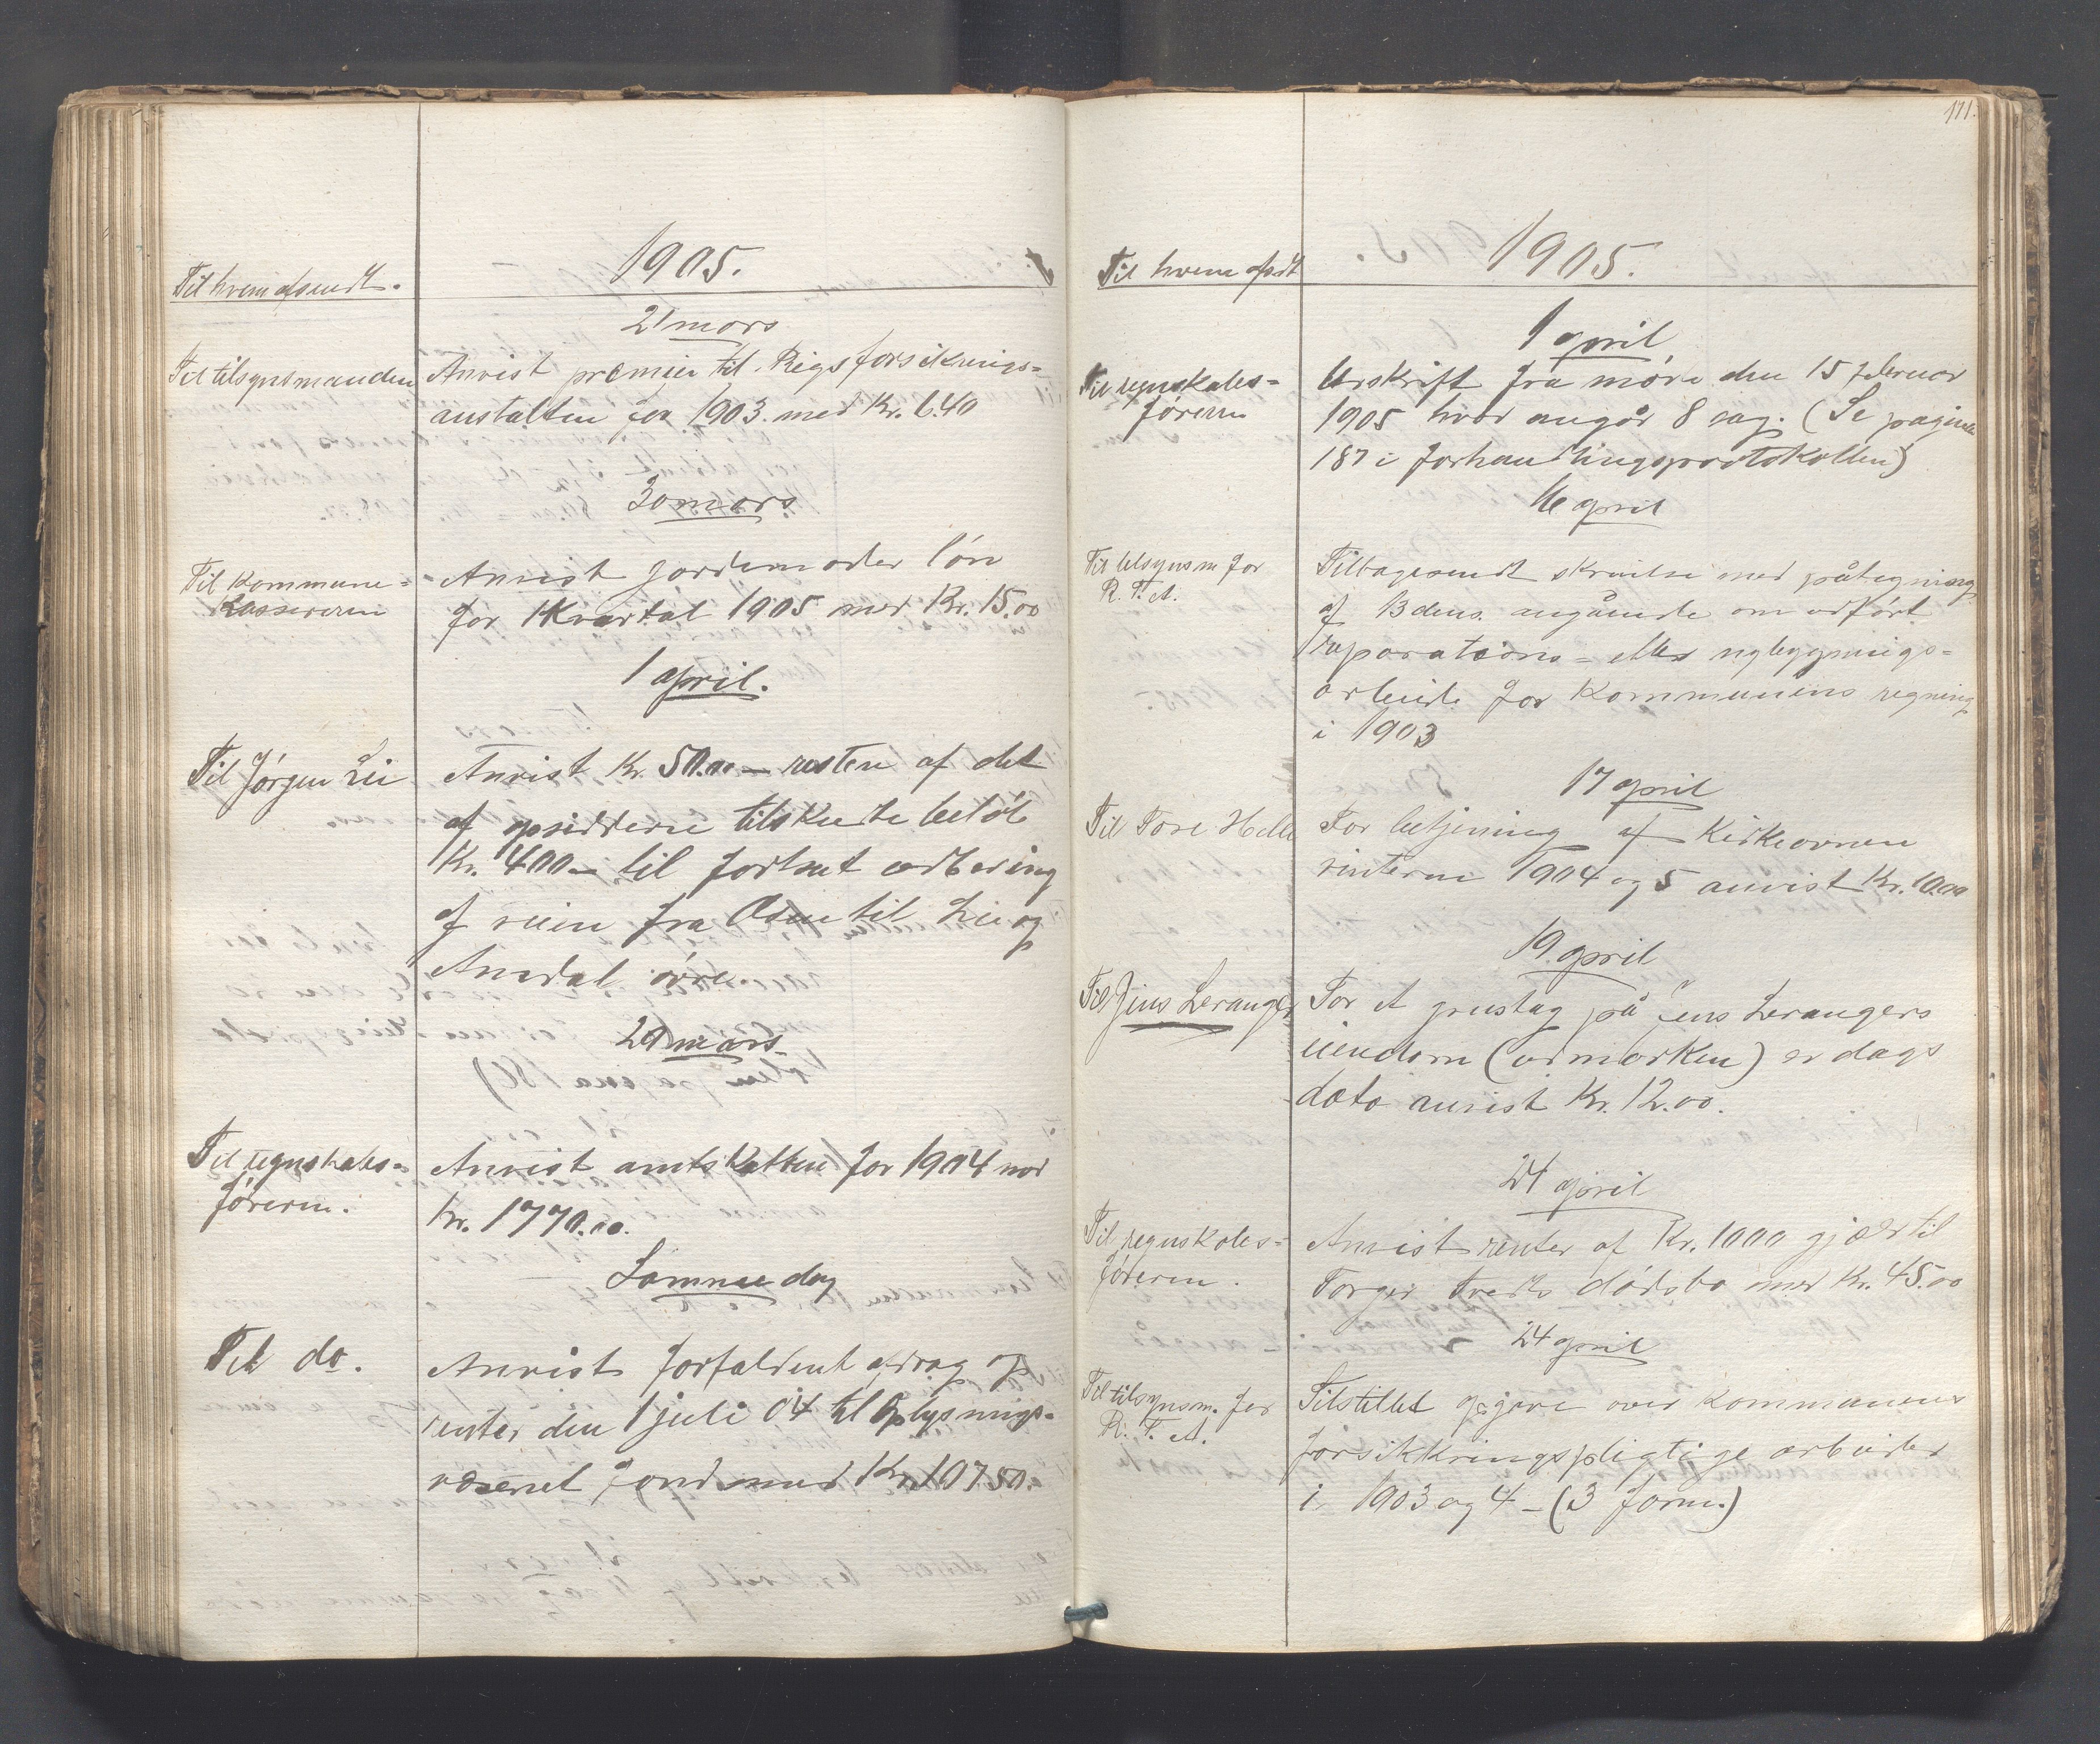 Til hvem afsendt.
1905.
21 mars
Til tilsynsmanden
Anvist premier til Rigsforsikrings-
anstalten for 1903 med Kr. 6.40
30 mars
Til Kommune-
Kassereren
Anvist jordemoder løn
for 1 Kvartal 1905 med Kr. 15.00
1 april.
Til Jörgen Lii
Anvist Kr. 50.00 – resten af det
af opsidderne tilskudte beløb
Kr. 400 – til fortsat udbedring
af veien fra Osen til Lii og
Amdal övre.
29 mars
Til regnskabs-
föreren.
Anvist amtskatten for 1904 med
Kr. 1770.00.
Samme dag
Til do.
Anvist forfaldent afdrag og
renter den 1 juli 04 til Oplysnings-
væsenet fond med Kr. 107.50.
171.
Til hvem afsdt
1905.
1 april
Til regnskabs-
föreren
Urskrift fra møde den 15 februar
1905 hvor angår 8 sag. (Se pagina
187 i forhandlingsprotokollen)
16 april
Til tilsynsm for
R. F. A.
Tilbagesendt skrivelse med påtegning
af 13 dens. angående om udført
reparations- eller nybygnings-
arbeide for Kommunens regning
i 1903
17 april
Til Tore Helle
For betjening af Kirkeovnen
vinteren 1904 og 5 anvist Kr. 10.00
19 april
Til Jens Leranger
For et grustag på Jens Lerangers
eiendom (udmarken) er dags
dato anvist Kr. 12.00.
24 april
Til regnskabs-
föreren.
Anvist renter af Kr. 1000 gjæld til
Torger Tveds dødsbo med Kr. 45.00
24 april
Til tilsynsm. for
R. F. A.
Tilstillet opgave over kommunens
forsikkringspligtige arbeider
i 1903 og 4 – (3 form.)